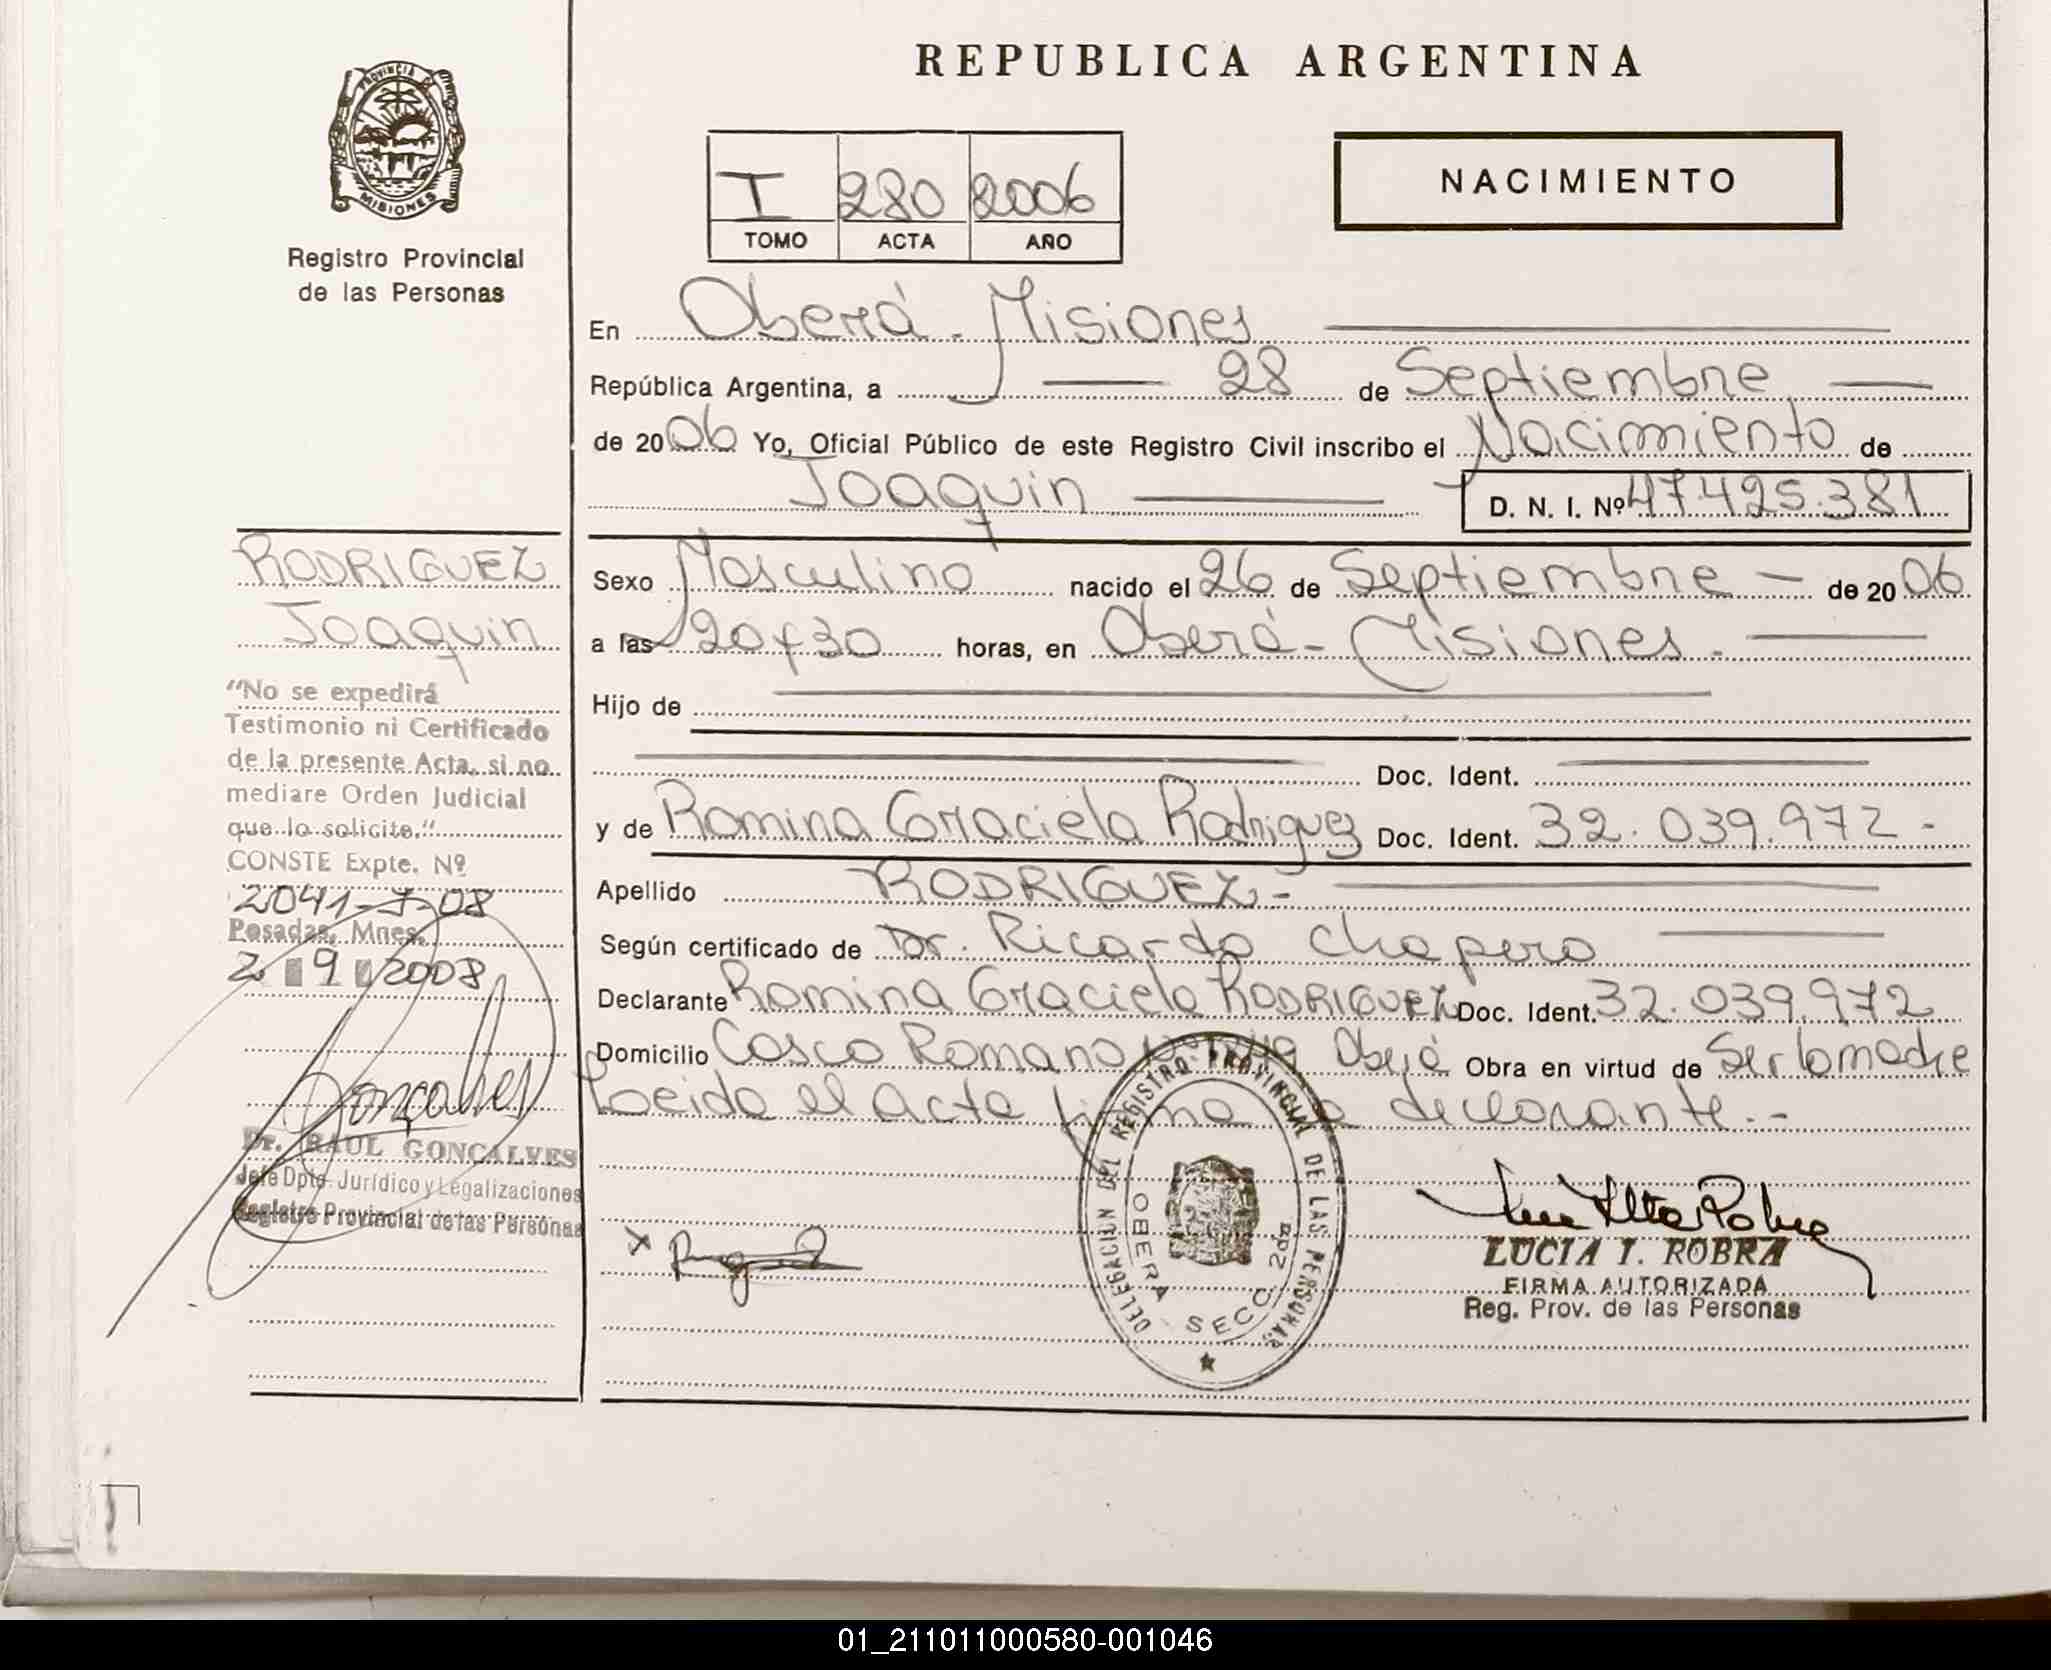 REPUBLICA ARGENTINA
PROVINCIA DE MISIONES
Registro Provincial
de las Personas
I 280 2006
TOMO ACTA AÑO
NACIMIENTO
En Oberá - Misiones
República Argentina, a 28 de Septiembre
de 2006 Yo, Oficial Público de este Registro Civil inscribo el Nacimiento de
Joaquin D. N. I. Nº 47.425.381
Sexo Masculino nacido el 26 de Septiembre de 2006
a las 20 y 30 horas, en Oberá - Misiones.
Hijo de
Doc. Ident.
y de Romina Graciela Rodriguez Doc. Ident. 32.039.972.-
Apellido RODRIGUEZ.-
Según certificado de Dr. Ricardo Chapero
Declarante Romina Graciela RODRIGUEZ Doc. Ident. 32.039.972
Domicilio Casco Romano Oberá Obra en virtud de Ser la madre
Leida el acta firma la declarante.-
RODRIGUEZ
Joaquin
"No se expedirá
Testimonio ni Certificado
de la presente Acta, si no
mediare Orden Judicial
que lo solicite."
CONSTE Expte. Nº
2041-J-08
Posadas, Mnes.
2 9 2008
Gonçalves
Dr. RAUL GONCALVES
Jefe Dpto. Jurídico y Legalizaciones
Registro Provincial de las Personas
X
DELEGACION DEL REGISTRO PROVINCIAL DE LAS PERSONAS
OBERA SECC. 2da
LUCIA I. ROBRA
FIRMA AUTORIZADA
Reg. Prov. de las Personas
01_211011000580-001046